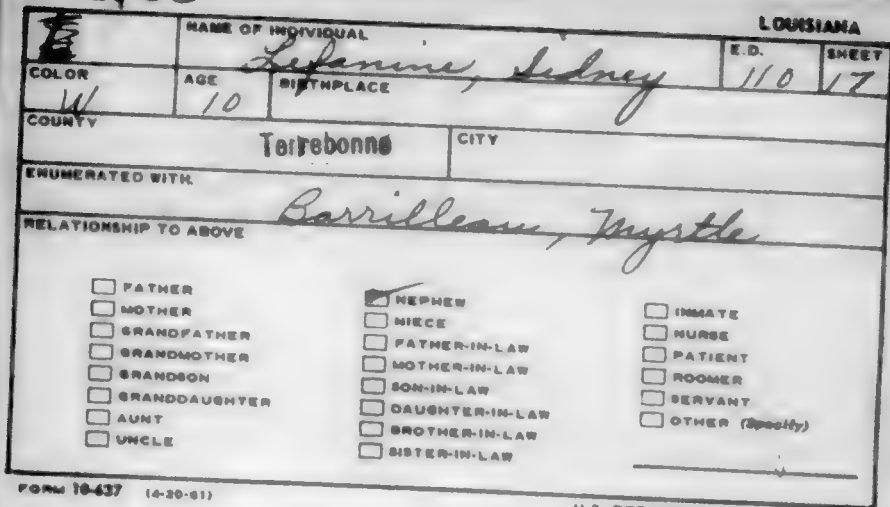 LOUISIANA
NAME OF INDIVIDUAL
Lefanine, Sidney
E.D.
110
SHEET
17
COLOR
W
AGE
10
BIRTHPLACE
COUNTY
Terrebonne
CITY
ENUMERATED WITH
Barrilleau, Myrtle
RELATIONSHIP TO ABOVE
FATHER
MOTHER
GRANDFATHER
GRANDMOTHER
GRANDSON
GRANDDAUGHTER
AUNT
UNCLE
NEPHEW
NIECE
FATHER-IN-LAW
MOTHER-IN-LAW
SON-IN-LAW
DAUGHTER-IN-LAW
BROTHER-IN-LAW
SISTER-IN-LAW
INMATE
NURSE
PATIENT
ROOMER
SERVANT
OTHER (Specify)
FORM 10-637 (4-20-61)